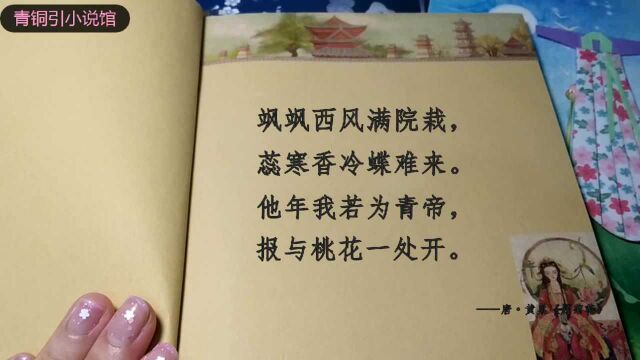 青铜引小说馆
飒飒西风满院栽，
蕊寒香冷蝶难来。
他年我若为青帝，
报与桃花一处开。
——唐·黄巢